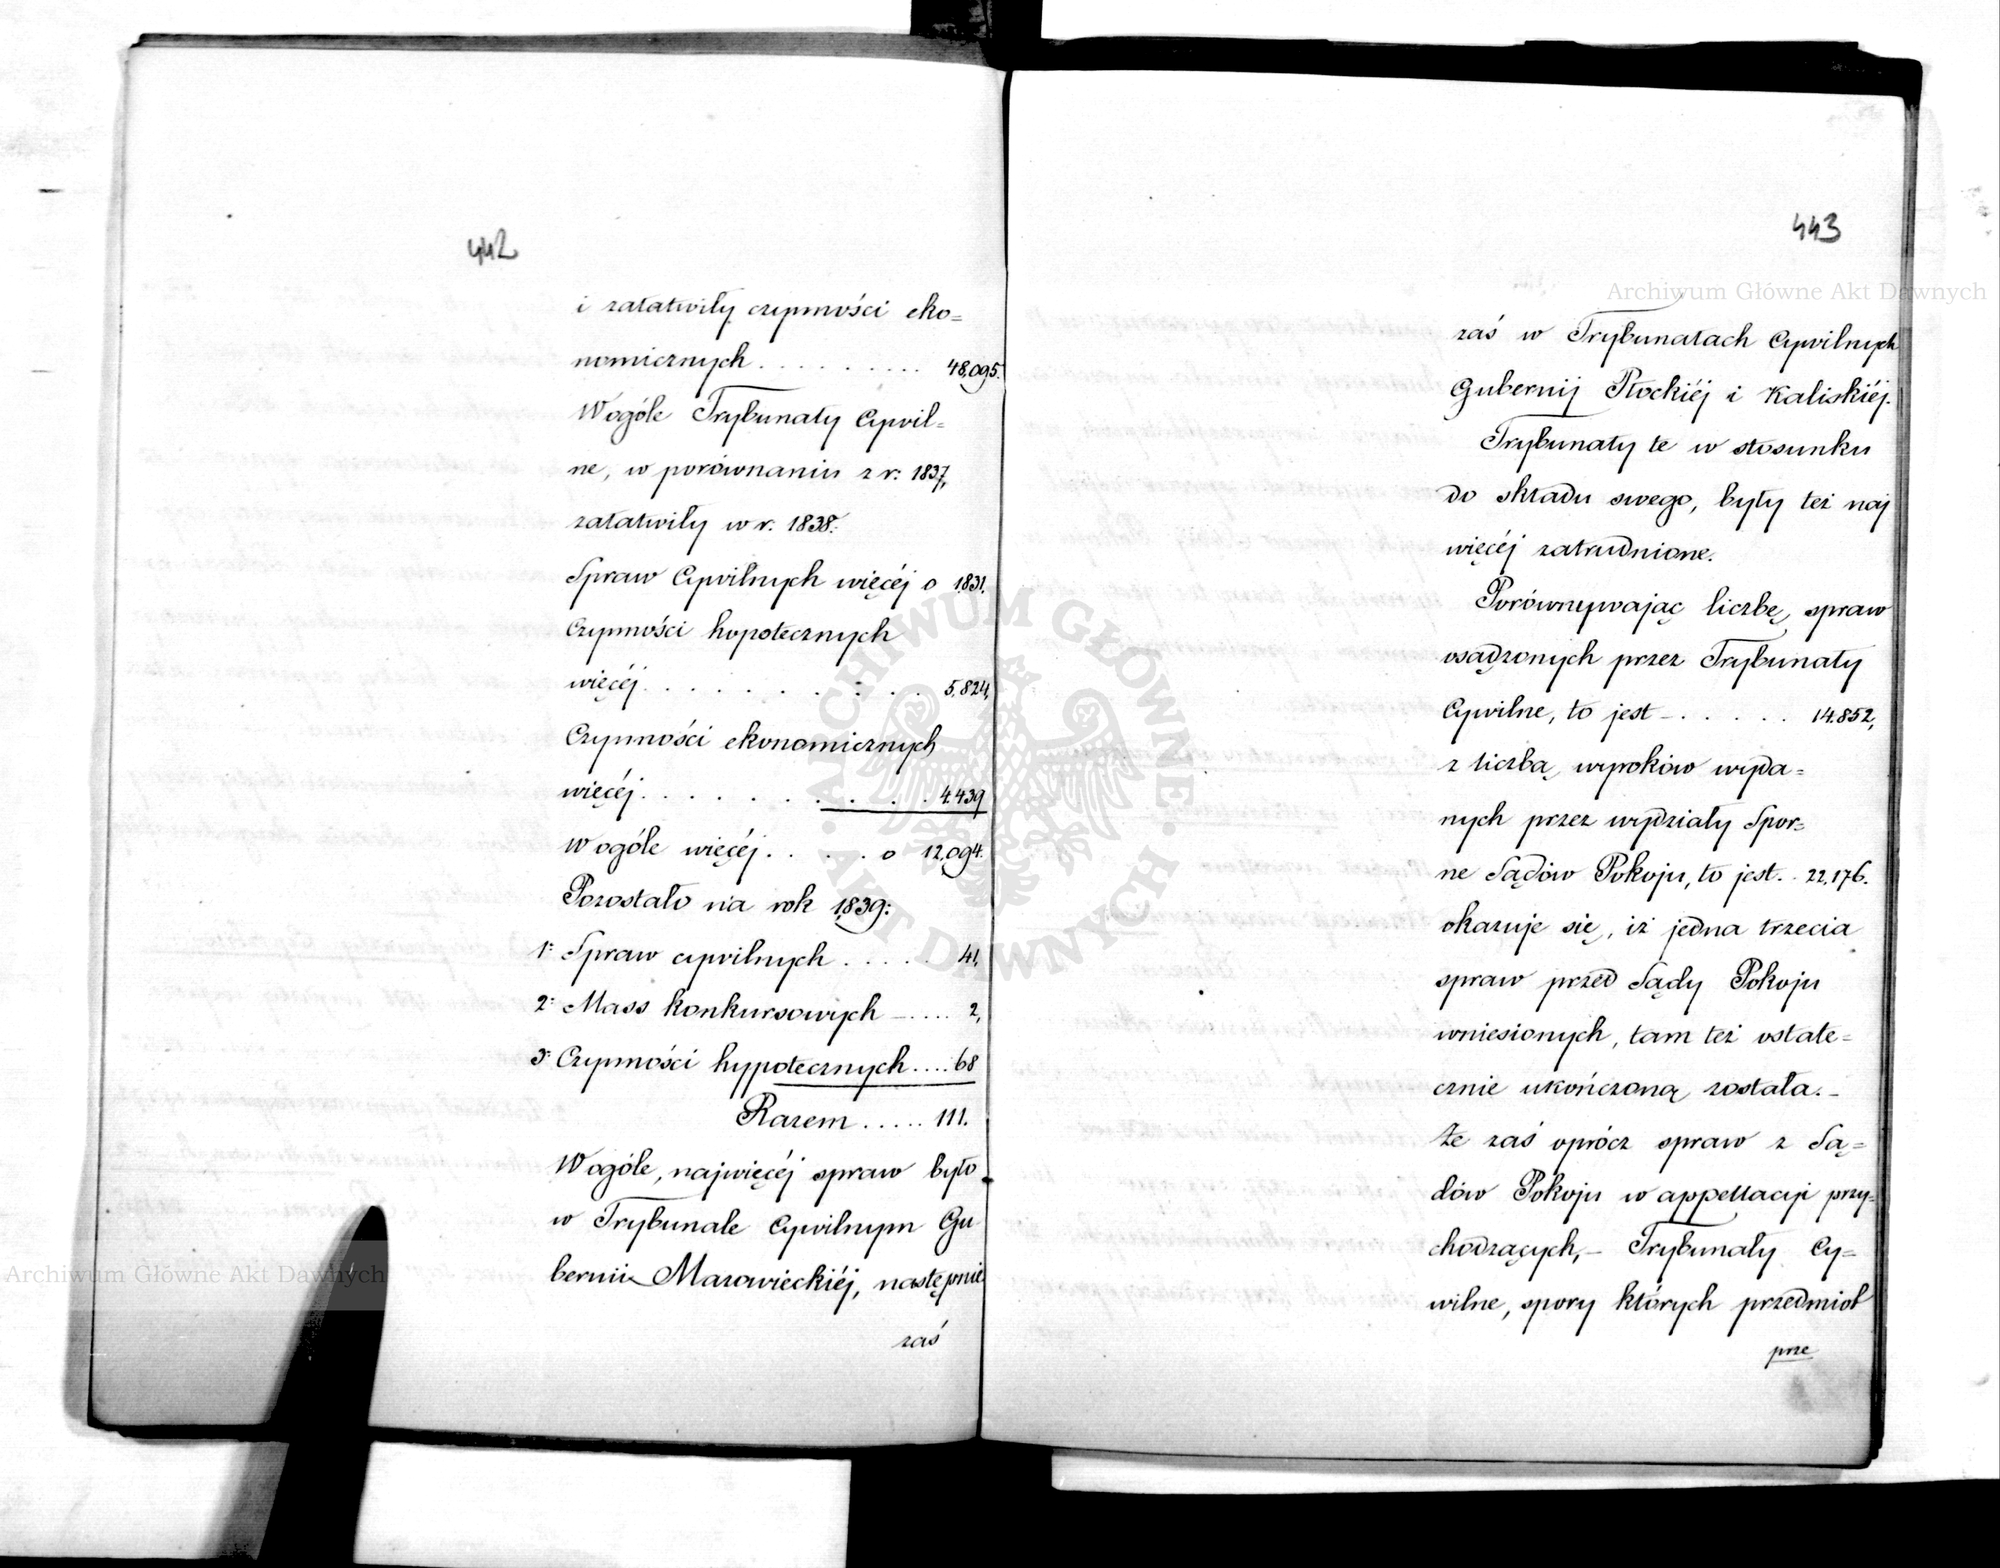 442
i załatwiły czynności eko=
nomicznych . . . . . . . . . . 48,095.
Wogóle Trybunały Cywil=
ne, w porównaniu z r: 1837,
załatwiły w r. 1838:
Spraw Cywilnych więcéj o 1831,
Czynności hypotecznych
więcéj . . . . . . . . . . . 5,824,
Czynności ekonomicznych
więcéj . . . . . . . . . . . 4.439
Wogóle więcéj . . . . . o 12,094.
Pozostało na rok 1839:
1: Spraw cywilnych . . . . . 41,
2: Mass konkursowych – . . . . 2,
3: Czynności hypotecznych . . . . 68
Razem . . . . . 111.
Wogóle, najwięcéj spraw było
w Trybunale Cywilnym Gu
bernii Mazowieckiéj, następnie
zaś
443
zaś w Trybunałach Cywilnych
Gubernij Płockiéj i Kaliskiéj.
Trybunały te w stosunku
do składu swego, były też naj
więcéj zatrudnione.
Porównywając liczbę spraw
osądzonych przez Trybunały
Cywilne, to jest – . . . . . 14.852,
z liczbą wyroków wyda=
nych przez wydziały Spor=
ne Sądów Pokoju, to jest . . 22,176.
okazuje się, iż jedna trzecia
spraw przed Sądy Pokoju
wniesionych, tam też ostate=
cznie ukończoną została. –
Że zaś oprócz spraw z Są=
dów Pokoju w appellacyi przy=
chodzących, – Trybunały Cy=
wilne, spory których przedmiot
prze
Archiwum Główne Akt Dawnych
Archiwum Główne Akt Dawnych
ARCHIWUM GŁÓWNE · AKT DAWNYCH ·